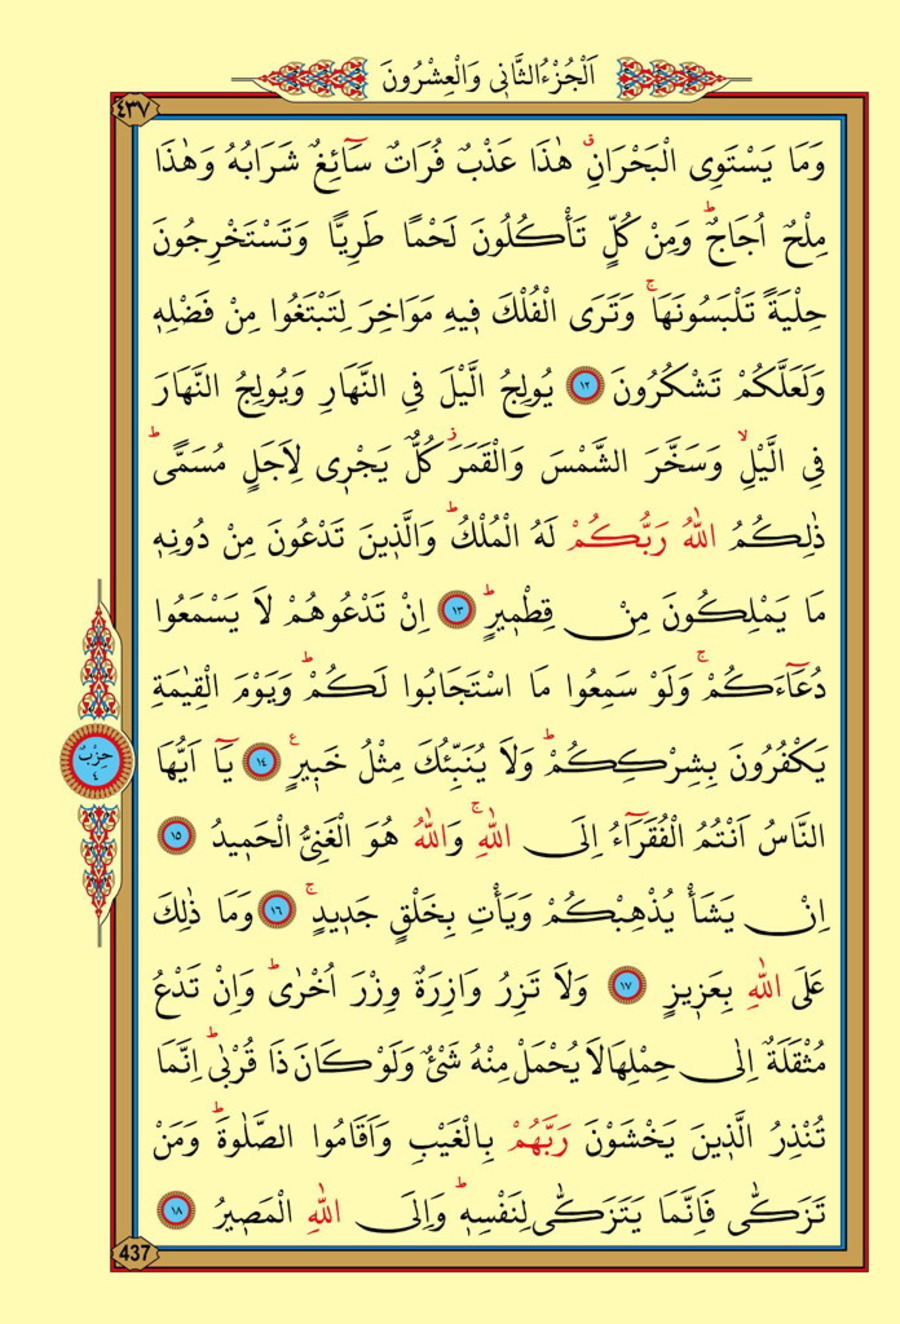 اَلْجُزْءُ الثَّانٖى وَالْعِشْرُونَ
٤٣٧
وَمَا يَسْتَوِى الْبَحْرَانِۗ هٰذَا عَذْبٌ فُرَاتٌ سَٓائِغٌ شَرَابُهُ وَهٰذَا
مِلْحٌ اُجَاجٌۜ وَمِنْ كُلٍّ تَأْكُلُونَ لَحْمًا طَرِيًّا وَتَسْتَخْرِجُونَ
حِلْيَةً تَلْبَسُونَهَاۚ وَتَرَى الْفُلْكَ فٖيهِ مَوَاخِرَ لِتَبْتَغُوا مِنْ فَضْلِهٖ
وَلَعَلَّكُمْ تَشْكُرُونَ ١٢ يُولِجُ الَّيْلَ فِى النَّهَارِ وَيُولِجُ النَّهَارَ
فِى الَّيْلِۙ وَسَخَّرَ الشَّمْسَ وَالْقَمَرَؗ كُلٌّ يَجْرٖى لِاَجَلٍ مُسَمًّىۜ
ذٰلِكُمُ اللّٰهُ رَبُّكُمْ لَهُ الْمُلْكُۜ وَالَّذٖينَ تَدْعُونَ مِنْ دُونِهٖ
مَا يَمْلِكُونَ مِنْ قِطْمٖيرٍۜ ١٣ اِنْ تَدْعُوهُمْ لَا يَسْمَعُوا
دُعَٓاءَكُمْۚ وَلَوْ سَمِعُوا مَا اسْتَجَابُوا لَكُمْۜ وَيَوْمَ الْقِيٰمَةِ
يَكْفُرُونَ بِشِرْكِكُمْۜ وَلَا يُنَبِّئُكَ مِثْلُ خَبٖيرٍࣖ ١٤ يَٓا اَيُّهَا
حِزْبٌ
٤
النَّاسُ اَنْتُمُ الْفُقَرَٓاءُ اِلَى اللّٰهِۚ وَاللّٰهُ هُوَ الْغَنِىُّ الْحَمٖيدُ ١٥
اِنْ يَشَأْ يُذْهِبْكُمْ وَيَأْتِ بِخَلْقٍ جَدٖيدٍۚ ١٦ وَمَا ذٰلِكَ
عَلَى اللّٰهِ بِعَزٖيزٍ ١٧ وَلَا تَزِرُ وَازِرَةٌ وِزْرَ اُخْرٰىۜ وَاِنْ تَدْعُ
مُثْقَلَةٌ اِلٰى حِمْلِهَا لَا يُحْمَلْ مِنْهُ شَىْءٌ وَلَوْ كَانَ ذَا قُرْبٰىۜ اِنَّمَا
تُنْذِرُ الَّذٖينَ يَخْشَوْنَ رَبَّهُمْ بِالْغَيْبِ وَاَقَامُوا الصَّلٰوةَۜ وَمَنْ
تَزَكّٰى فَاِنَّمَا يَتَزَكّٰى لِنَفْسِهٖۜ وَاِلَى اللّٰهِ الْمَصٖيرُ ١٨
437